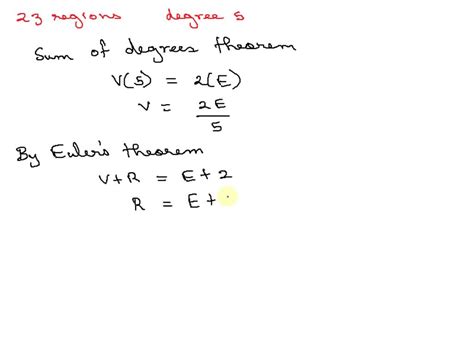 23 regions degree 5
Sum of degrees theorem
V(5) = 2(E)
V = 2E/5
By Euler's theorem
V + R = E + 2
R = E +